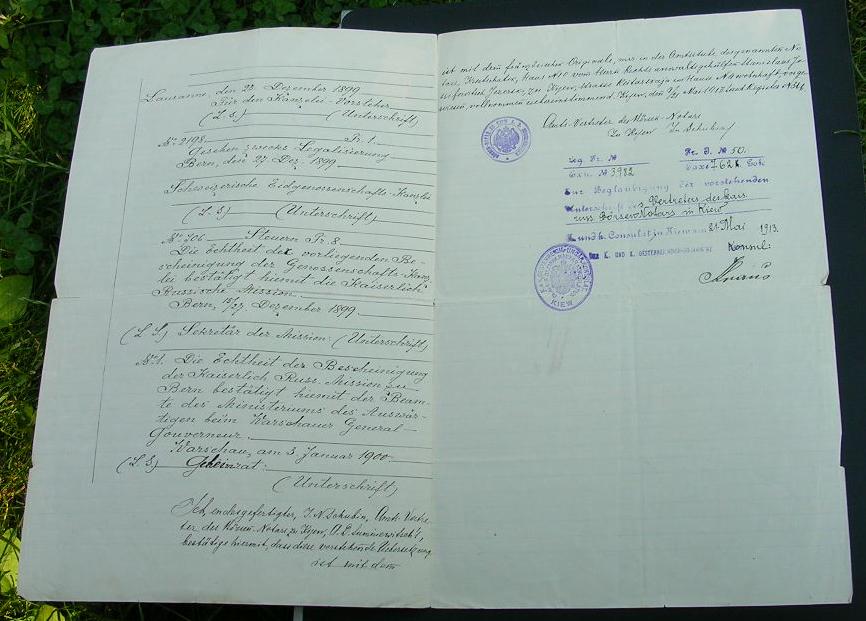 Lausanne, den 22. Dezember 1899.
Für den Kanzlei-Vorsteher
(L. S.) (Unterschrift)
Nr. 2198. Fr. 1.
Gesehen zwecks Legalisierung
Bern, den 27. Dez. 1899.
Schweizerische Eidgenossenschafts-Kanzlei
(L. S.) (Unterschrift)
Nr. 706 Steuern Fr. 8
Die Echtheit der vorliegenden Be-
scheinigung der Genossenschafts-Kanz-
lei bestätigt hiemit die Kaiserlich
Russische Mission.
Bern, 15/27. Dezember 1899.
(L. S.) Sekretär der Mission: (Unterschrift)
Nr. 1. Die Echtheit der Bescheinigung
der Kaiserlich Russ. Mission zu
Bern bestätigt hiemit der Beam-
te des Ministeriums des Auswär-
tigen beim Warschauer General-
Gouverneur.
Warschau, am 3 Januar 1900.
(L. S.) Geheimrat:
(Unterschrift)
Ich, endesgefertigter, J. N. Schubin, Amts-Vertre-
ter des Börsen-Notars zu Kyew,
bestätige hiermit, dass diese vorstehende Uebersetzung
ist mit dem
ist mit dem französischen Originale, mir in der Amtsstube des genannten No-
tars, Haus N 10 vom Herrn Rechtsanwaltsgehilfen Stanislaus
zu Kyew, Strasse im Haus N wohnhaft, vorge-
wiesen, vollkommen übereinstimmend. Kyew, den Mai 1913 und Register N
Amts-Vertreter des Börsen-Notars
zu Kyew J. N. Schubin
Reg. Fr. № Fr. B. № 50.
Exh. № 3982 Taxe 762 K. Goh.
Zur Beglaubigung der vorstehenden
Unterschrift des Vertreters des kais.
russ. Börsen Notars in Kiew
K. und k. Consulat in Kiew am 21. Mai 1913.
DER K. UND K. OESTERREICHISCH-UNGARISCHE
Konsul:
KIEW